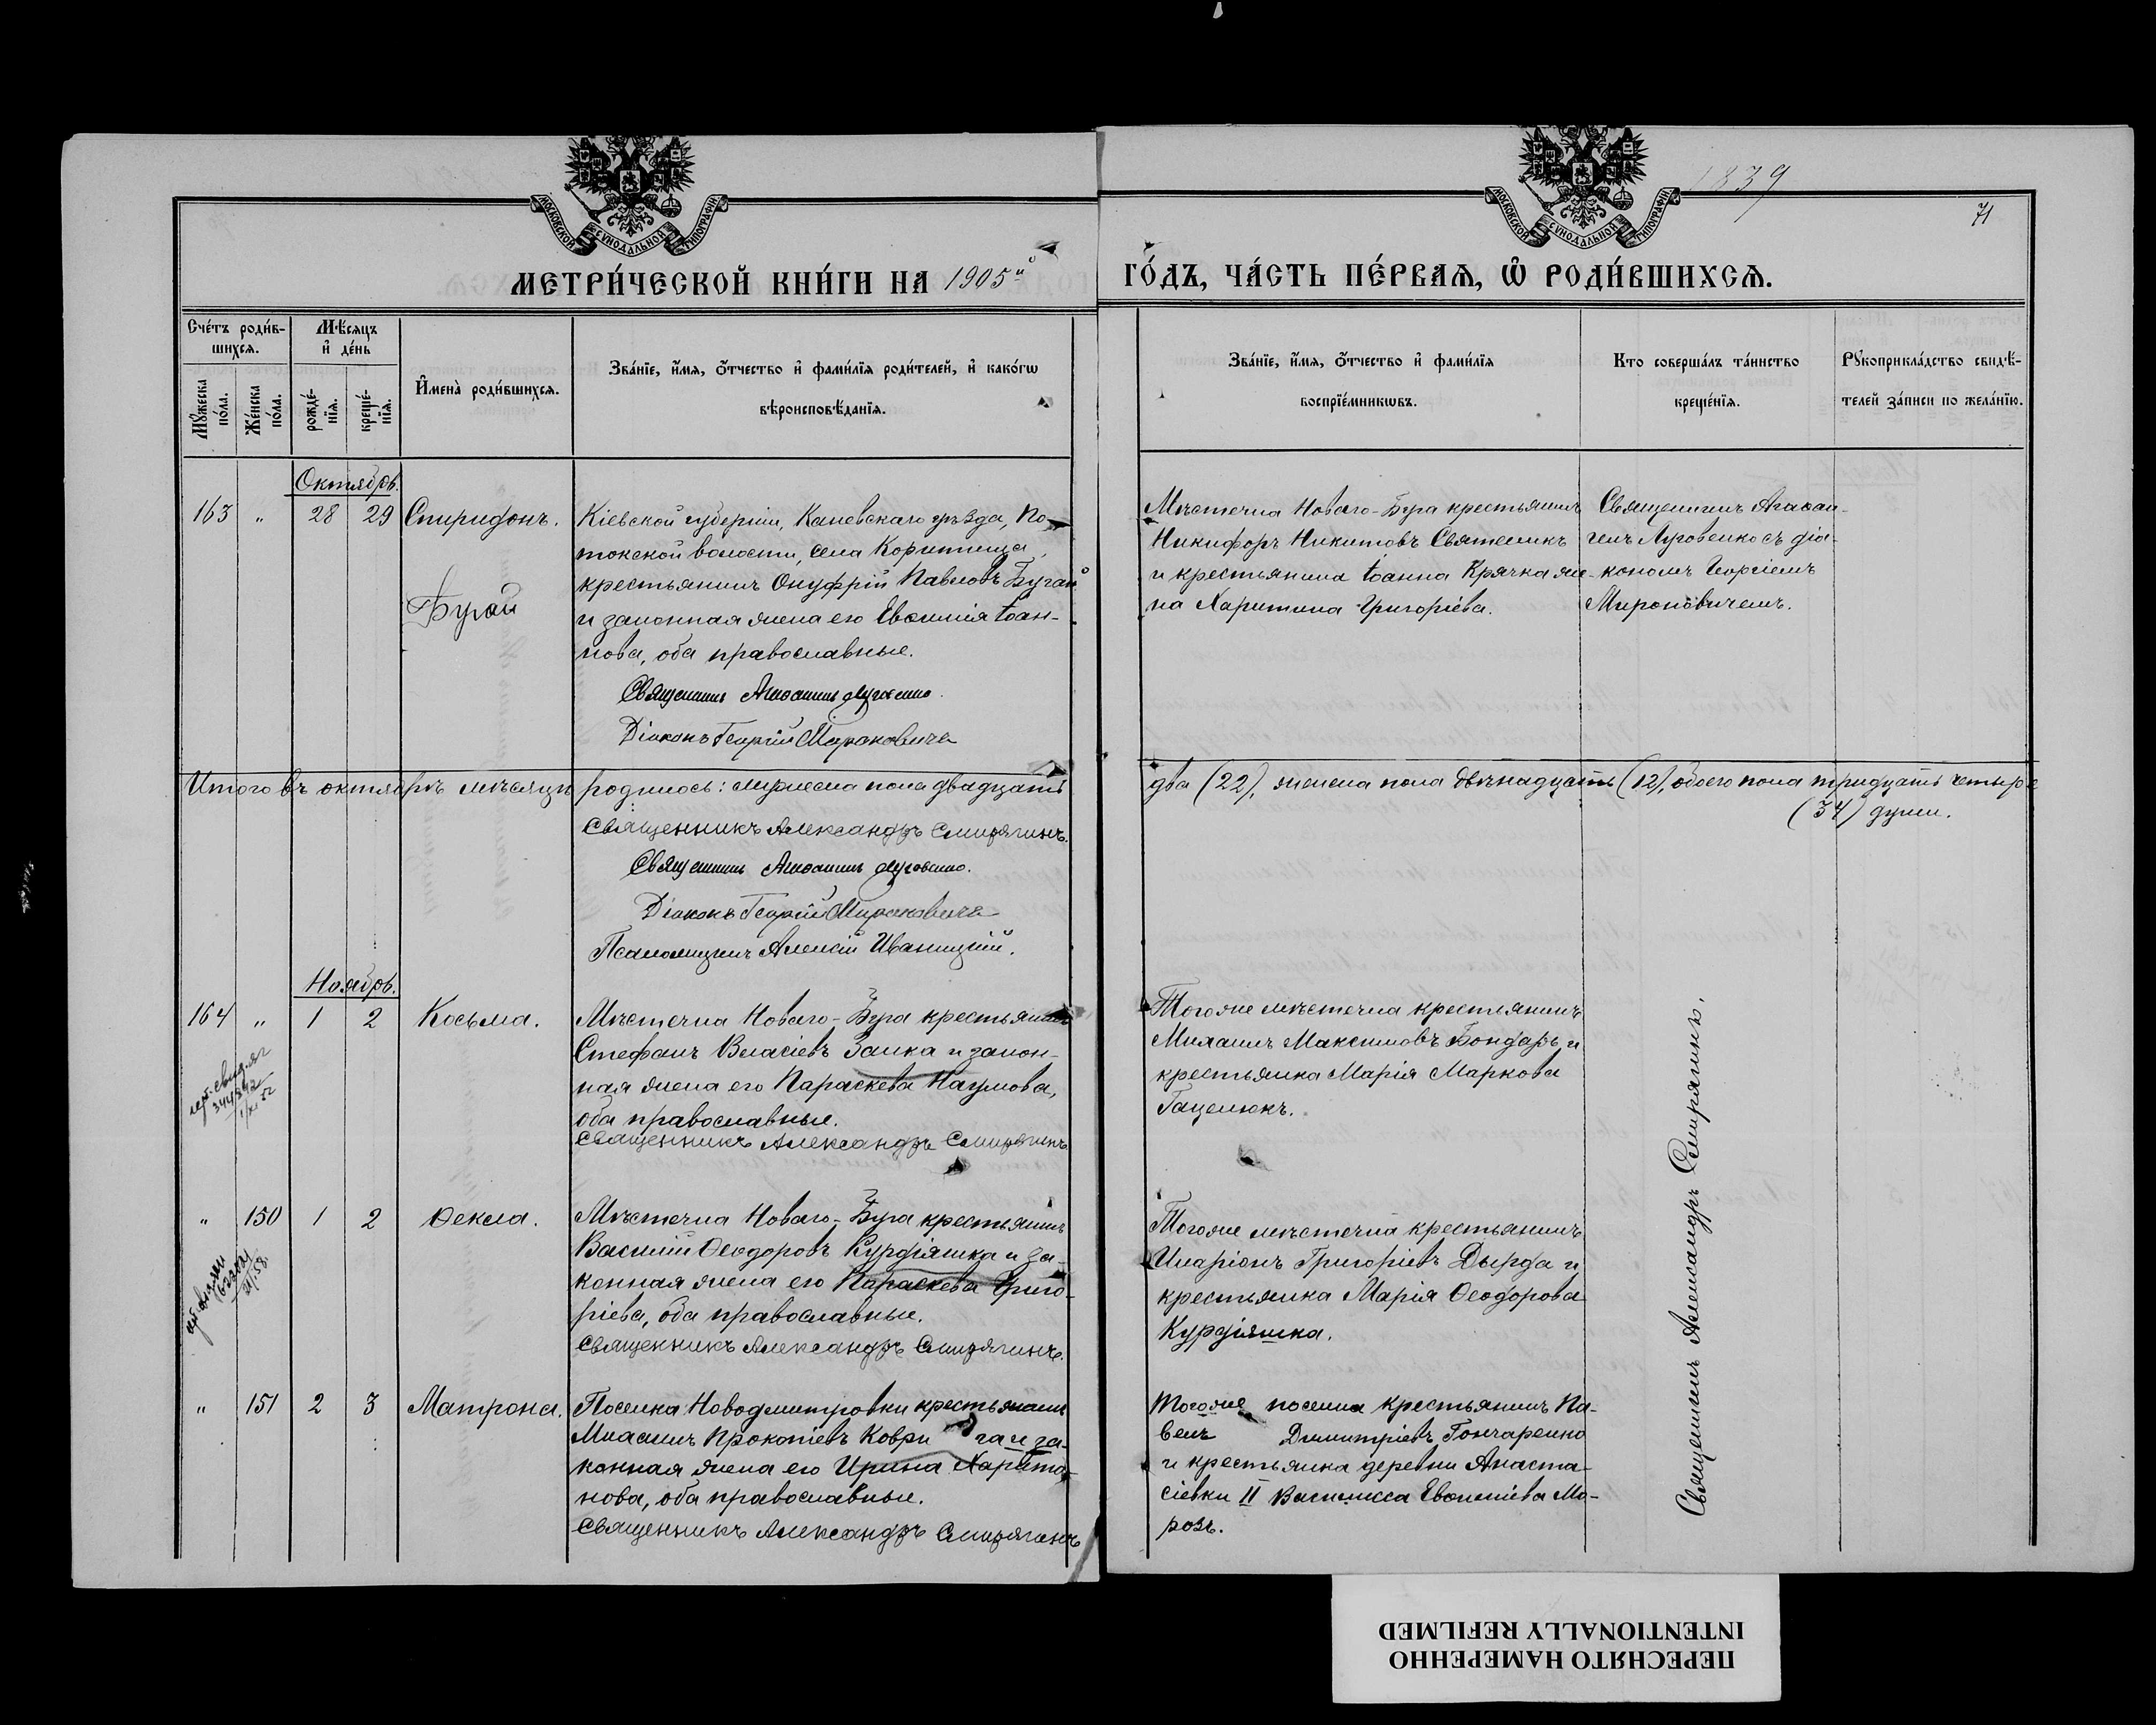 1839
71
МОСКОВСКОЙ СѴНОДАЛЬНОЙ ТИПОГРАФІИ
МОСКОВСКОЙ СѴНОДАЛЬНОЙ ТИПОГРАФІИ
МЕТРИ́ЧЕСКОЙ КНИ́ГИ НА 1905й
ГО́ДЪ, ЧА́СТЬ ПЕ́РВАѦ, Ѡ҆ РОДИ́ВШИХСѦ.
Сче́тъ роди́в-
шихсѧ.
Мꙋжеска по́ла.
Же́нска по́ла.
Мѣ́сѧцъ
и҆ де́нь
рожде́-
нїѧ.
креще́-
нїѧ.
И҆мена̀ роди́вшихсѧ.
Зва́нїе, и҆́мѧ, ѻ҆́тчество и҆ фами́лїѧ роди́телей, и҆ како́гѡ
вѣроисповѣ́данїѧ.
Зва́нїе, и҆́мѧ, ѻ҆́тчество и҆ фами́лїѧ
воспрїе́мникѡвъ.
Кто соверша́лъ та́инство
креще́нїѧ.
Рꙋкоприкла́дство свидѣ́-
телей за́писи по жела́нїю.
Октябрь.
163 " 28 29 Спиридонъ.
Бугай
Кіевской губерніи, Каневскаго уѣзда, По-
токской волости, села Коритища,
крестьянинъ Онуфрій Павловъ Бугай
и законная жена его Евѳимія Іоан-
нова, оба православные.
Священникъ Агаѳангелъ Луговенко.
Діаконъ Георгій Мироновичъ
Мѣстечка Новаго-Буга крестьянинъ
Никифоръ Никитовъ Святенко
и крестьянина Іоанна Крячка же-
на Харитина Григоріева.
Священникъ Агаѳан-
гелъ Луговенко съ діа-
кономъ Георгіемъ
Мироновичемъ.
Итого въ октябрѣ мѣсяцѣ родилось: мужеска пола двадцать
два (22), женска пола двѣнадцать (12), обоего пола тридцать четыре
(34) души.
Священникъ Александръ Смирягинъ.
Священникъ Агаѳангелъ Луговенко.
Діаконъ Георгій Мироновичъ
Псаломщикъ Алексій Иваницкій.
Ноябрь.
164 " 1 2 Косьма.
Мѣстечка Новаго-Буга крестьянинъ
Стефанъ Власіевъ Заика и закон-
ная жена его Параскева Наумова,
оба православные.
Священникъ Александръ Смирягинъ
Тогоже мѣстечка крестьянинъ
Михаилъ Максимовъ Бондарь и
крестьянка Марія Маркова
Гацелюкъ.
" 150 1 2 Ѳекла.
Мѣстечка Новаго-Буга крестьянинъ
Василій Ѳеодоровъ Курдіяшка и за-
конная жена его Параскева Григо-
ріева, оба православные.
Священникъ Александръ Смирягинъ.
Тогоже мѣстечка крестьянинъ
Иларіонъ Григоріевъ Дырда и
крестьянка Марія Ѳеодорова
Курдіяшка.
" 151 2 3 Матрона.
Поселка Новодмитровки крестьянинъ
Михаилъ Прокопіевъ Коври га и за-
конная жена его Ирина Харито-
нова, оба православные.
Священникъ Александръ Смирягинъ
Тогоже поселка крестьянинъ Па-
велъ Димитріевъ Гончаренко
и крестьянка деревни Анаста-
сіевки II Василисса Евѳиміева Мо-
розъ.
Священникъ Александръ Смирягинъ.
ПЕРЕСНЯТО НАМЕРЕННО
INTENTIONALLY REFILMED